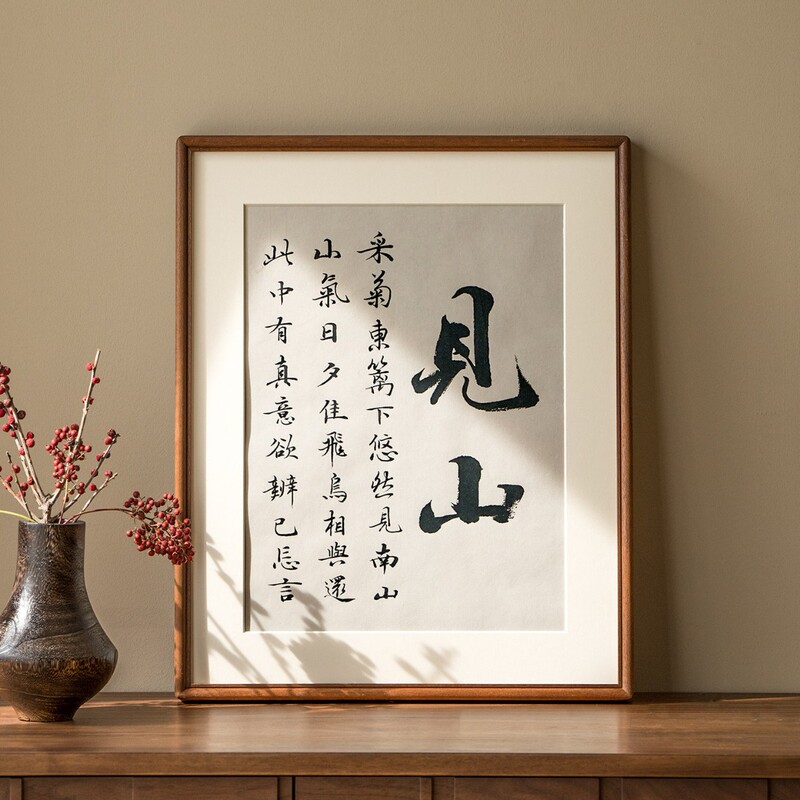 見山
采菊東篱下悠然見南山
山氣日夕佳飛鳥相與還
此中有真意欲辨已忘言